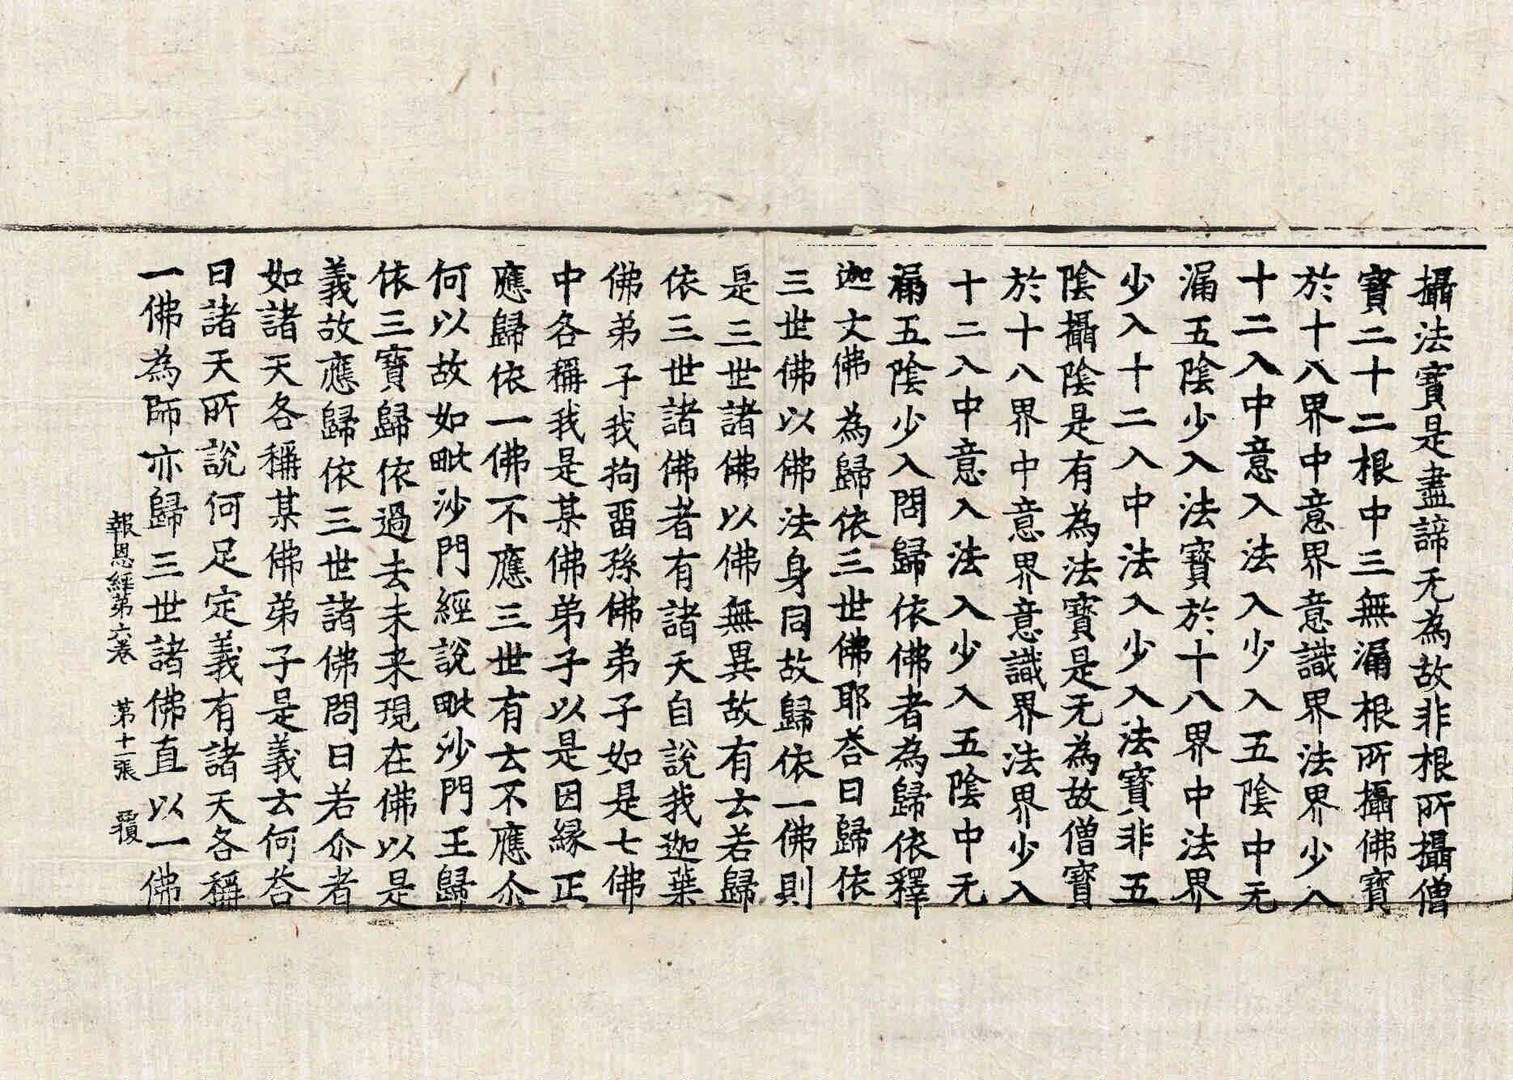 攝法寶是盡諦无為故非根所攝僧
寶二十二根中三無漏根所攝佛寶
於十八界中意界意識界法界少入
十二入中意入法入少入五陰中无
漏五陰少入法寶於十八界中法界
少入十二入中法入少入法寶非五
陰攝陰是有為法寶是无為故僧寶
於十八界中意界意識界法界少入
十二入中意入法入少入五陰中无
漏五陰少入問歸依佛者為歸依釋
迦文佛為歸依三世佛耶荅曰歸依
三世佛以佛法身同故歸依一佛則
是三世諸佛以佛無異故有云若歸
依三世諸佛者有諸天自說我迦葉
佛弟子我拘留孫佛弟子如是七佛
中各稱我是某佛弟子以是因緣正
應歸依一佛不應三世有云不應尒
何以故如毗沙門經說毗沙門王歸
依三寶歸依過去未来現在佛以是
義故應歸依三世諸佛問曰若尒者
如諸天各稱某佛弟子是義云何荅
曰諸天所說何足定義有諸天各稱
一佛為師亦歸三世諸佛直以一佛
報恩經第六卷　第十一張　覆